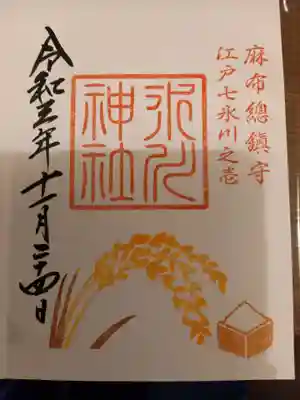 麻布總鎮守
江戸七氷川之壱
氷川
神社
令和三年十一月二十四日